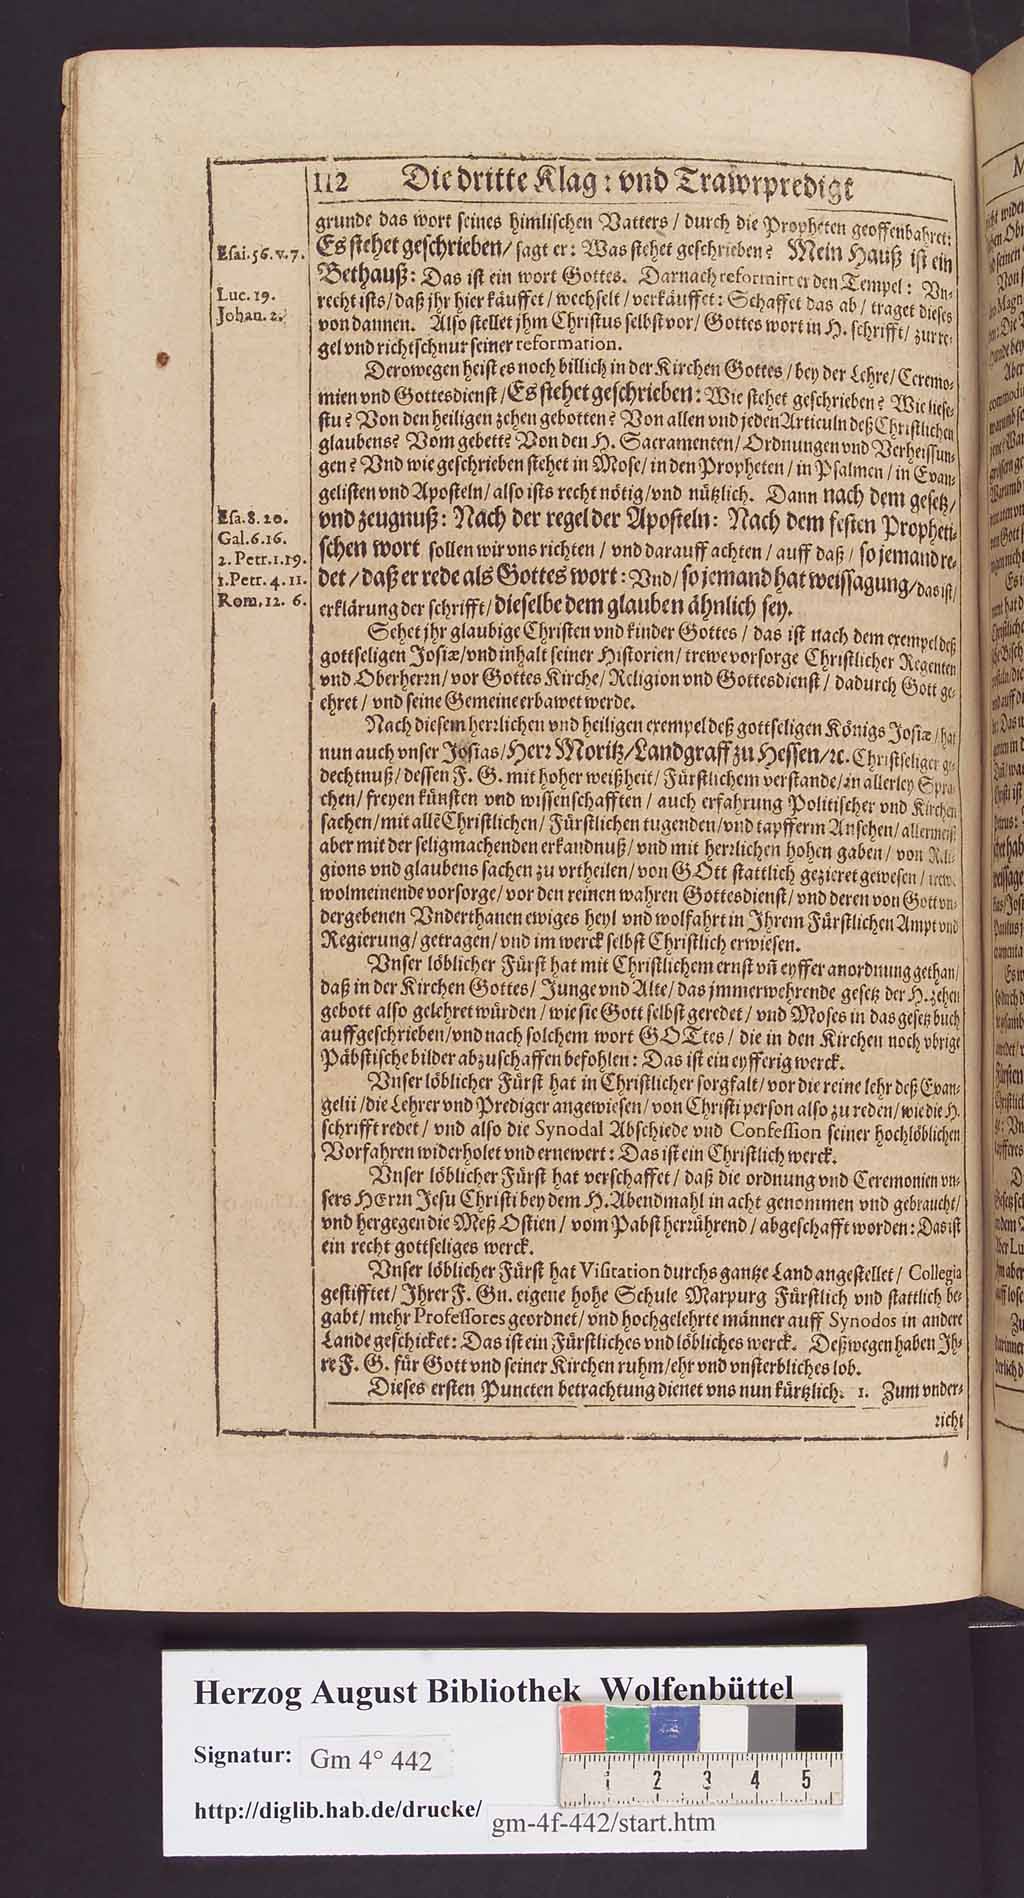 112 Die dritte Klag: vnd Trawrpredigt
grunde das wort seines himlischen Vatters/ durch die Propheten geoffenbahret:
Esai. 56. v. 7.
Es stehet geschrieben/ sagt er: Was stehet geschrieben? Mein Hauß ist ein
Bethauß: Das ist ein wort Gottes. Darnach reformirt er den Tempel: Vn-
Luc. 19.
recht ists/ daß jhr hier käuffet/ wechselt/ verkäuffet: Schaffet das ab/ traget dieses
Johan. 2.
von dannen. Also stellet jhm Christus selbst vor/ Gottes wort in H. schrifft/ zur re-
gel vnd richtschnur seiner reformation.
Derowegen heist es noch billich in der Kirchen Gottes/ bey der Lehre/ Ceremo-
mien vnd Gottesdienst/ Es stehet geschrieben: Wie stehet geschrieben? Wie liese-
stu? Von den heiligen zehen gebotten? Von allen vnd jeden Articuln deß Christlichen
glaubens? Vom gebett? Von den H. Sacramenten/ Ordnungen vnd Verheissun-
gen? Vnd wie geschrieben stehet in Mose/ in den Propheten/ in Psalmen/ in Evan-
gelisten vnd Aposteln/ also ists recht nötig/ vnd nützlich. Dann nach dem gesetz/
Esa. 8. 20.
vnd zeugnuß: Nach der regel der Aposteln: Nach dem festen Propheti-
Gal. 6. 16.
2. Petr. 1. 19.
schen wort sollen wir vns richten/ vnd darauff achten/ auff daß/ so jemand re-
1. Petr. 4. 11.
det/ daß er rede als Gottes wort: Vnd/ so jemand hat weissagung/ das ist/
Rom. 12. 6.
erklärung der schrifft/ dieselbe dem glauben ähnlich sey.
Sehet jhr glaubige Christen vnd kinder Gottes/ das ist nach dem exempel deß
gottseligen Josiæ/ vnd inhalt seiner Historien/ trewe vorsorge Christlicher Regenten
vnd Oberherrn/ vor Gottes Kirche/ Religion vnd Gottesdienst/ dadurch Gott ge-
ehret/ vnd seine Gemeine erbawet werde.
Nach diesem herrlichen vnd heiligen exempel deß gottseligen Königs Josiæ/ hat
nun auch vnser Josias/ Herr Moritz/ Landgraff zu Hessen/ ꝛc. Christseliger ge-
dechtnuß/ dessen F. G. mit hoher weißheit/ Fürstlichem verstande/ in allerley Spra-
chen/ freyen künsten vnd wissenschafften/ auch erfahrung Politischer vnd Kirchen
sachen/ mit allẽ Christlichen/ Fürstlichen tugenden/ vnd tapfferm Ansehen/ allermeist
aber mit der seligmachenden erkandnuß/ vnd mit herrlichen hohen gaben/ von Reli-
gions vnd glaubens sachen zu vrtheilen/ von GOtt stattlich gezieret gewesen/ trewe
wolmeinende vorsorge/ vor den reinen wahren Gottesdienst/ vnd deren von Gott vn-
dergebenen Vnderthanen ewiges heyl vnd wolfahrt in Ihrem Fürstlichen Ampt vnd
Regierung/ getragen/ vnd im werck selbst Christlich erwiesen.
Vnser löblicher Fürst hat mit Christlichem ernst vñ eyffer anordnung gethan/
daß in der Kirchen Gottes/ Junge vnd Alte/ das jmmerwehrende gesetz der H. zehen
gebott also gelehret würden/ wie sie Gott selbst geredet/ vnd Moses in das gesetz buch
auffgeschrieben/ vnd nach solchem wort GOTtes/ die in den Kirchen noch vbrige
Päbstische bilder abzuschaffen befohlen: Das ist ein eyfferig werck.
Vnser löblicher Fürst hat in Christlicher sorgfalt/ vor die reine lehr deß Evan-
gelii/ die Lehrer vnd Prediger angewiesen/ von Christi person also zu reden/ wie die H.
schrifft redet/ vnd also die Synodal Abschiede vnd Confession seiner hochlöblichen
Vorfahren widerholet vnd ernewert: Das ist ein Christlich werck.
Vnser löblicher Fürst hat verschaffet/ daß die ordnung vnd Ceremonien vn-
sers HErrn Jesu Christi bey dem H. Abendmahl in acht genommen vnd gebraucht/
vnd hergegen die Meß Ostien/ vom Pabst herrührend/ abgeschafft worden: Das ist
ein recht gottseliges werck.
Vnser löblicher Fürst hat Visitation durchs gantze Land angestellet/ Collegia
gestifftet/ Ihrer F. Gn. eigene hohe Schule Marpurg Fürstlich vnd stattlich be-
gabt/ mehr Professores geordnet/ vnd hochgelehrte männer auff Synodos in andere
Lande geschicket: Das ist ein Fürstliches vnd löbliches werck. Deßwegen haben Ih-
re F. G. für Gott vnd seiner Kirchen ruhm/ ehr vnd vnsterbliches lob.
Dieses ersten Puncten betrachtung dienet vns nun kürtzlich. 1. Zum vnder-
richt
Herzog August Bibliothek Wolfenbüttel
Signatur: Gm 4° 442
http://diglib.hab.de/drucke/ gm-4f-442/start.htm
1 2 3 4 5